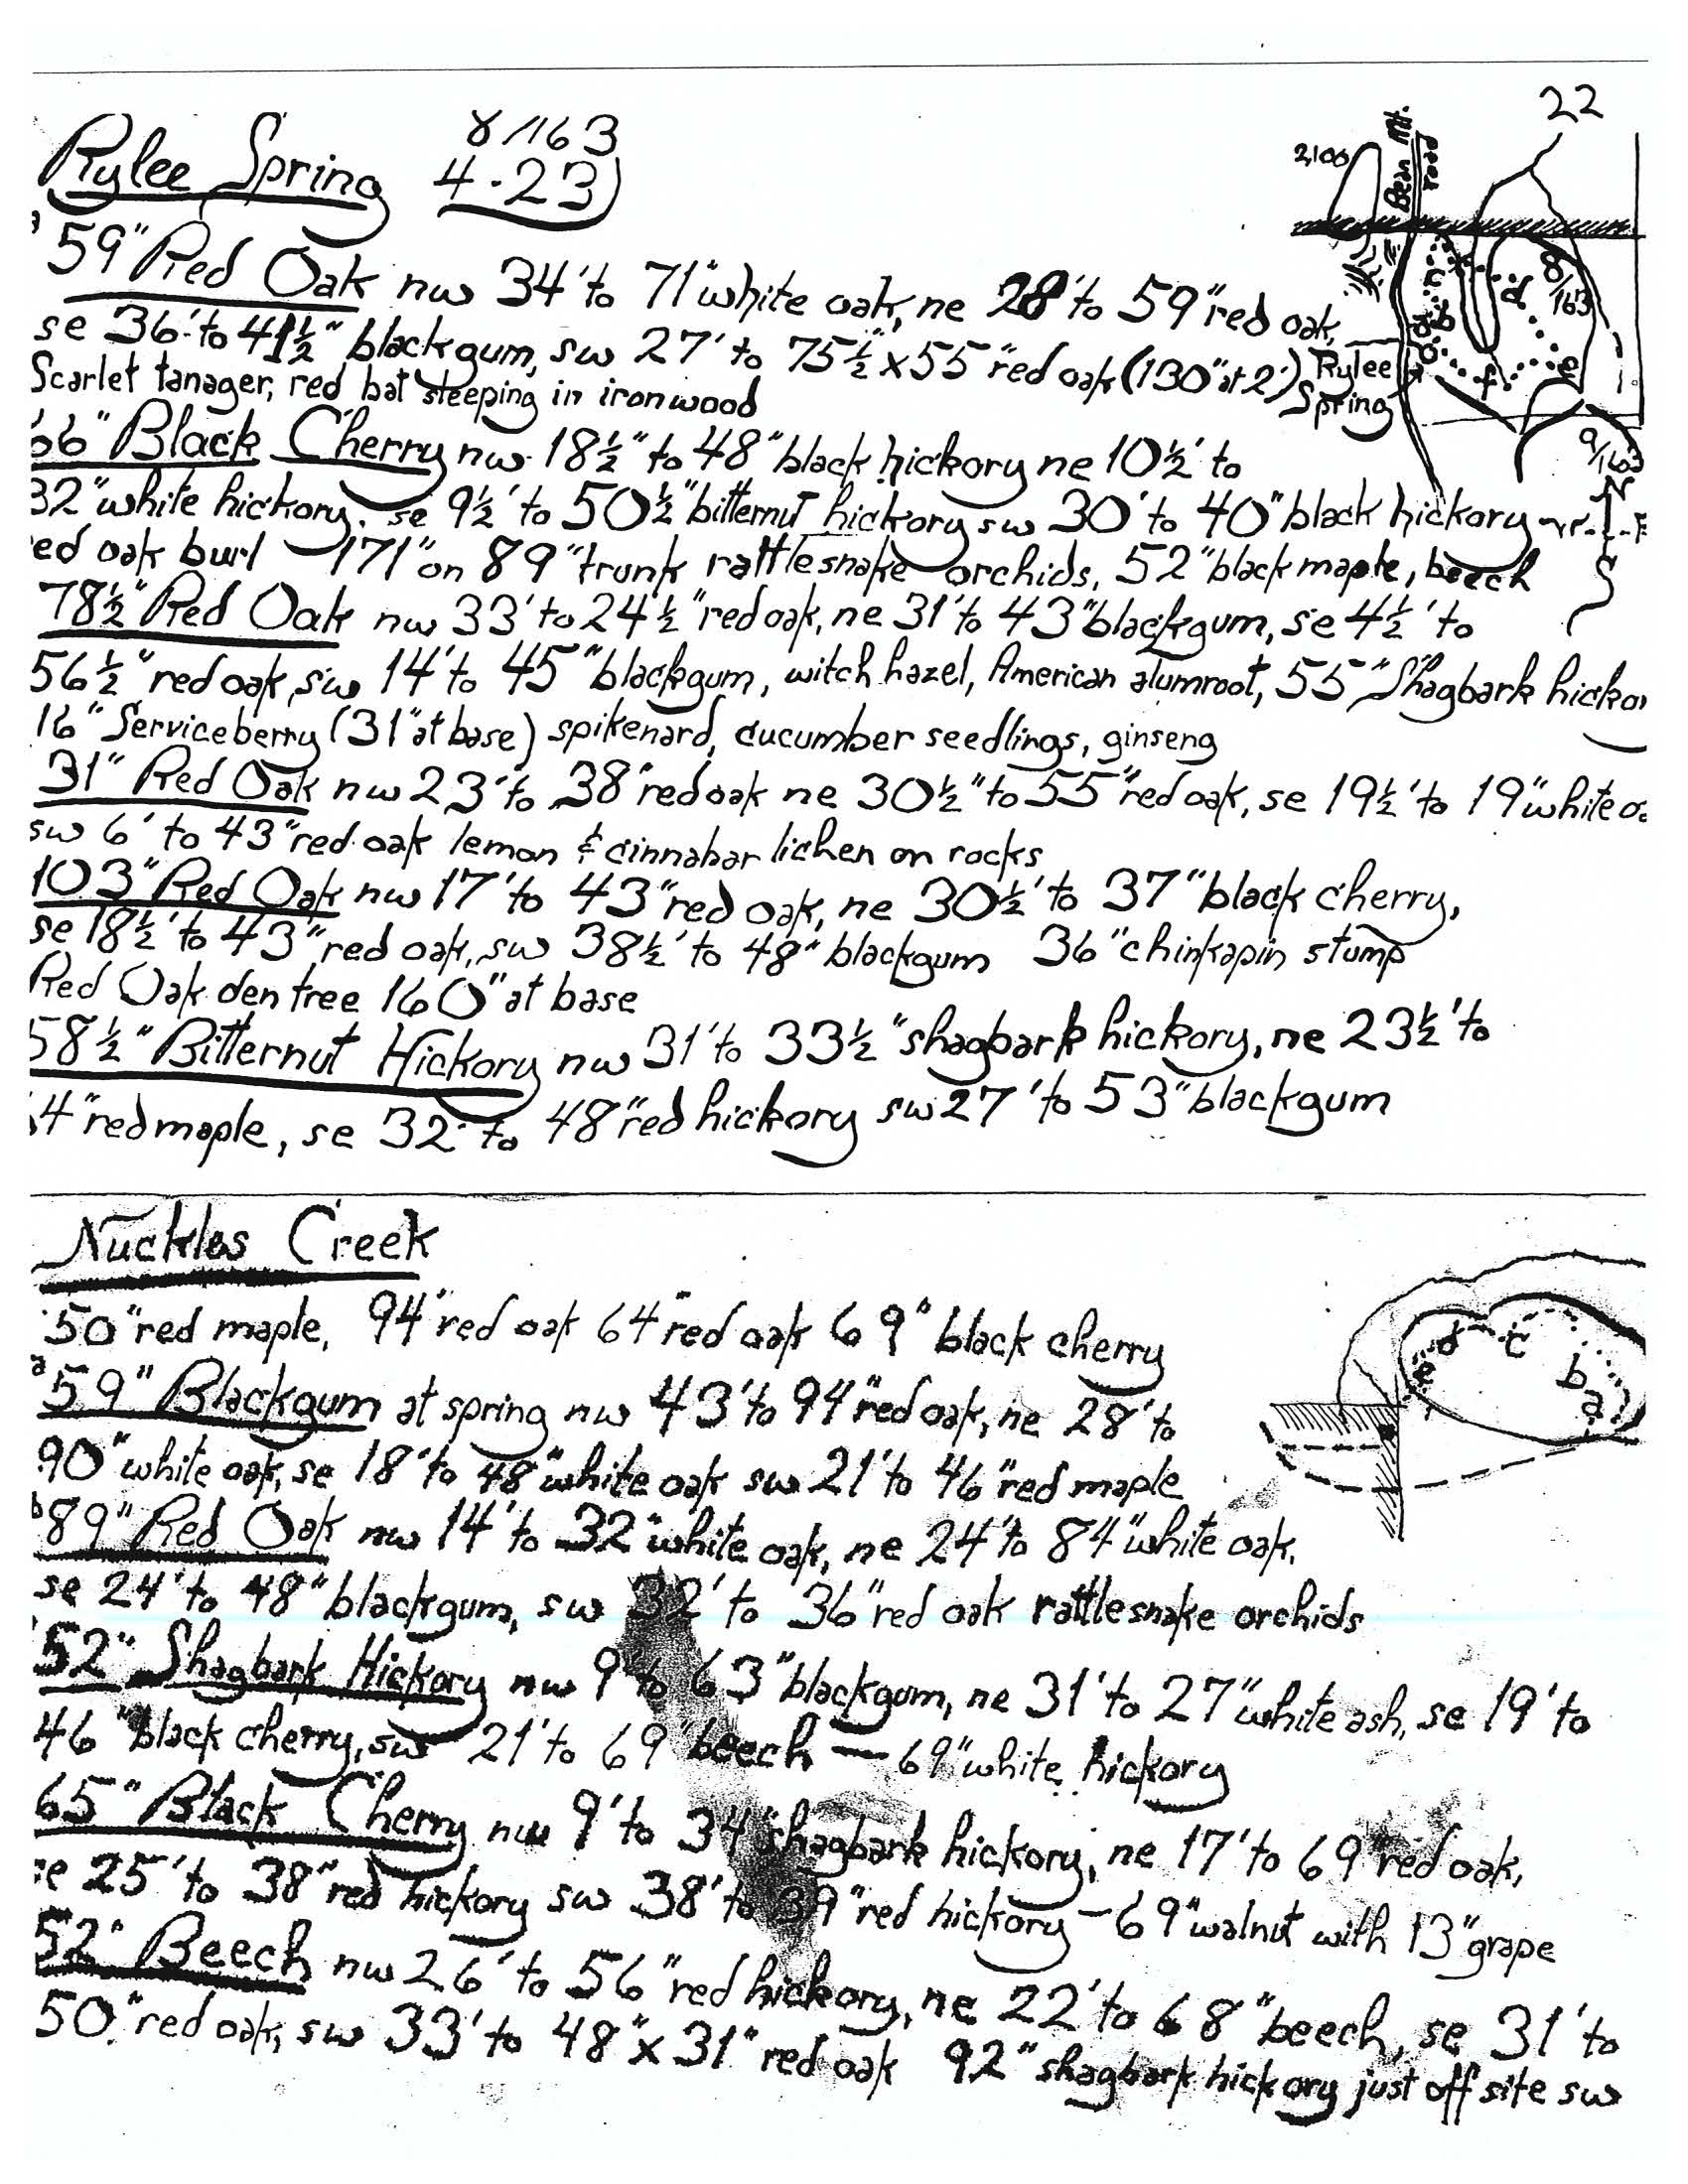 22
Rylee Spring 8/163
4-23
2,100
Bean Mt. road
a 59" Red Oak nw 34' to 71" white oak, ne 28' to 59" red oak,
se 36' to 41½" blackgum, sw 27' to 75½" x 55" red oak (130" at 2')
Scarlet tanager, red bat sleeping in ironwood
Rylee Spring
c d b a f e 8/163
9/163
N
66" Black Cherry nw 18½" to 48" black hickory ne 10½' to
32" white hickory, se 9½' to 50½" bitternut hickory sw 30' to 40" black hickory
red oak burl — 171" on 89" trunk rattlesnake orchids, 52" black maple, beech
78½" Red Oak nw 33' to 24½" red oak, ne 31' to 43" blackgum, se 4½' to
56½" red oak, sw 14' to 45" blackgum, witch hazel, American alumroot, 55" Shagbark hicko
16" Serviceberry (31" at base) spikenard, cucumber seedlings, ginseng
31" Red Oak nw 23' to 38" red oak ne 30½" to 55" red oak, se 19½' to 19" white o
sw 6' to 43" red oak lemon & cinnabar lichen on rocks
103" Red Oak nw 17' to 43" red oak, ne 30½' to 37" black cherry,
se 18½' to 43" red oak, sw 38½' to 48" blackgum 36" chinkapin stump
Red Oak den tree 160" at base
58½" Bitternut Hickory nw 31' to 33½" shagbark hickory, ne 23½' to
4" red maple, se 32' to 48" red hickory sw 27' to 53" blackgum
Nuckles Creek
50" red maple, 94" red oak 64" red oak 69" black cherry
a 59" Blackgum at spring nw 43' to 94" red oak, ne 28' to
90" white oak, se 18' to 48" white oak sw 21' to 46" red maple
e d c b a
b 89" Red Oak nw 14' to 32" white oak, ne 24' to 84" white oak,
se 24' to 48" blackgum, sw 32' to 36" red oak rattlesnake orchids
52" Shagbark Hickory nw 9' to 63" blackgum, ne 31' to 27" white ash, se 19' to
46" black cherry, sw 21' to 69" beech — 69" white hickory
65" Black Cherry nw 9' to 34" shagbark hickory, ne 17' to 69" red oak,
se 25' to 38" red hickory sw 38' to 39" red hickory — 69" walnut with 13" grape
52" Beech nw 26' to 56" red hickory, ne 22' to 68" beech, se 31' to
50" red oak, sw 33' to 48" x 31" red oak 92" shagbark hickory just off site sw